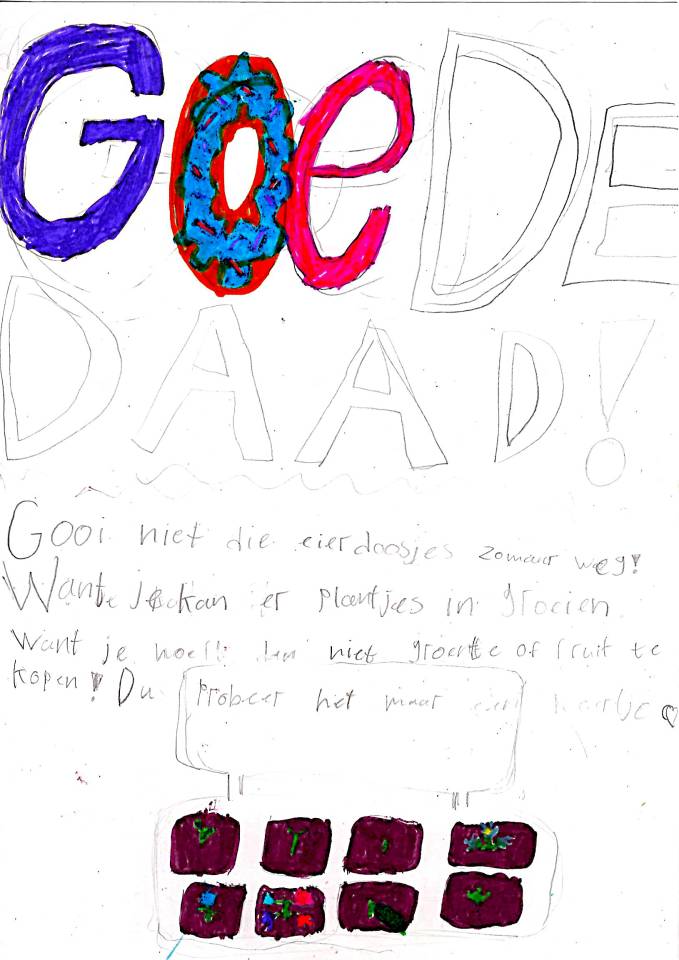 GOeDE
DAAD!
Gooi niet die eierdoosjes zomaar weg!
Want je kan er plantjes in groeien
Want je hoeft dan niet groente of fruit te
kopen! Du probeer het maar een keertje